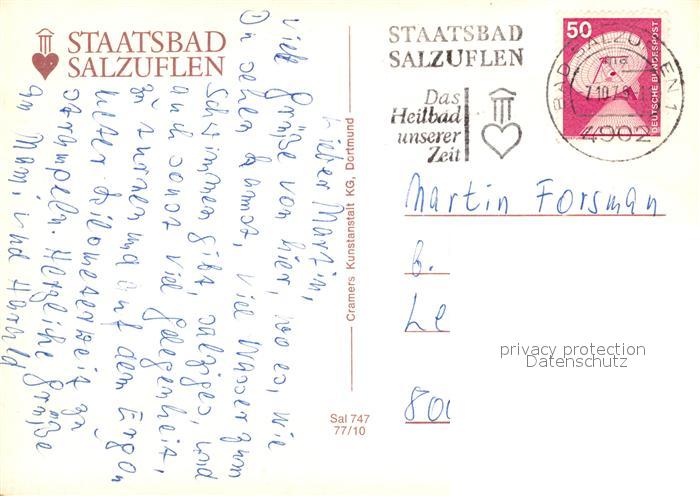 STAATSBAD
SALZUFLEN
Lieber Martin,
viele Grüße von hier, wo es, wie
Du sehen kannst, viel Wasser zum
Schwimmen gibt, salziges, und
auch sonst viel Gelegenheit,
zu turnen und auf dem Ergo-
meter kilometerweit zu
strampeln. Herzliche Grüße
an Mami und Harald
Cramers Kunstanstalt KG, Dortmund
Sal 747
77/10
STAATSBAD
SALZUFLEN
Das
Heilbad
unserer
Zeit
BAD SALZUFLEN 1
4902
50
DEUTSCHE BUNDESPOST
Martin Forsman
6.
Le
privacy protection
Datenschutz